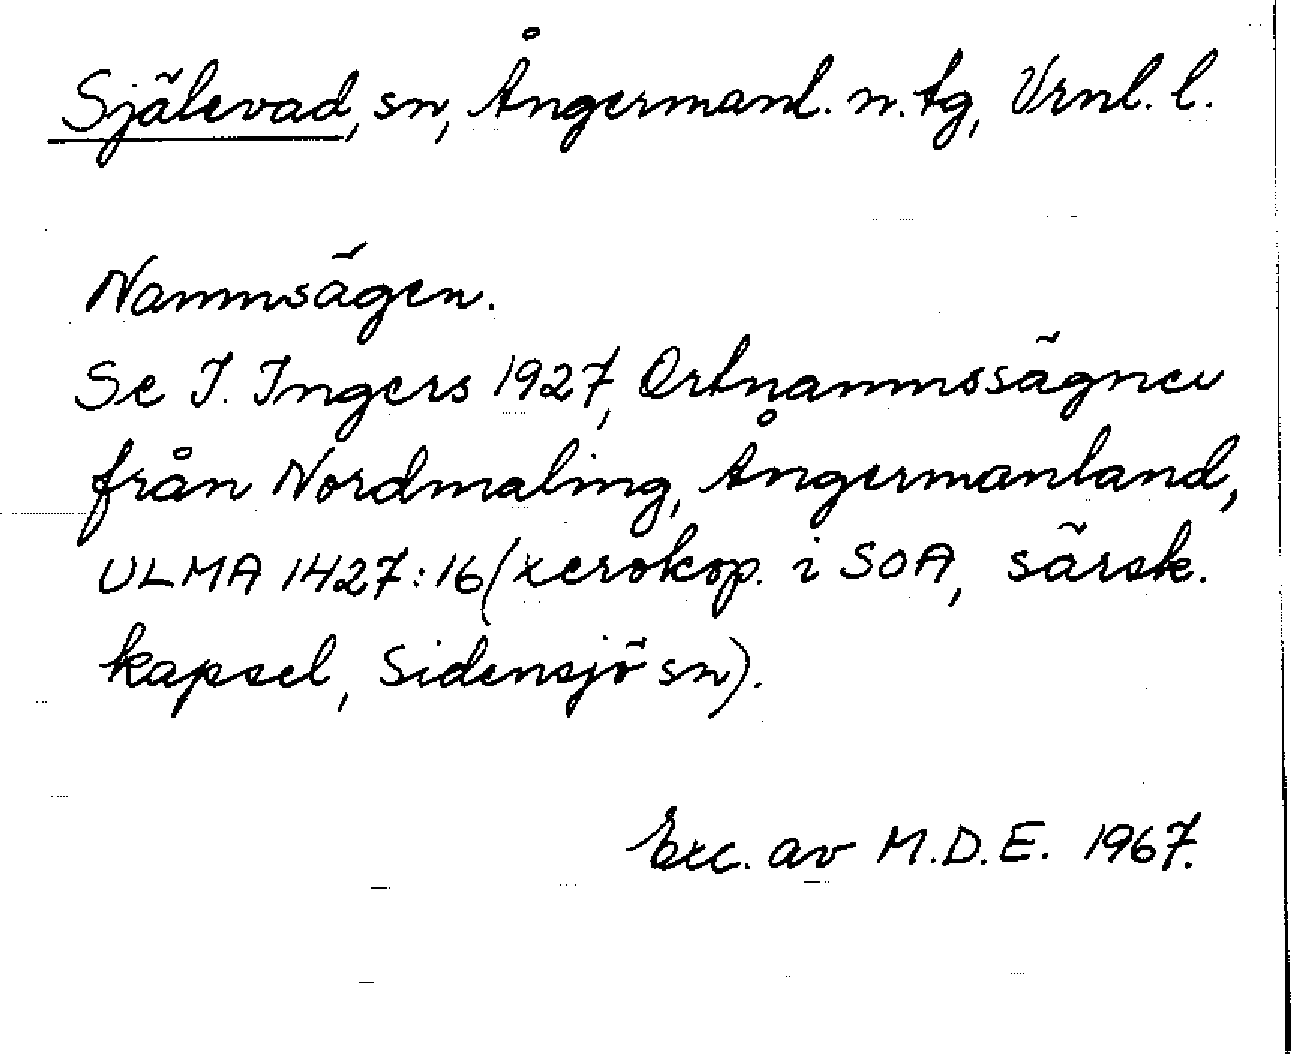 Själevad, sn, Ångermanl. n. tg, Vrnl. l.
Namnsägen.
Se I. Ingers 1927, Ortnamnssägner
från Nordmaling, Ångermanland,
ULMA 1427:16 (xerokop. i SOA, särsk.
kapsel, Sidensjö sn).
Exc. av M.D.E. 1967.